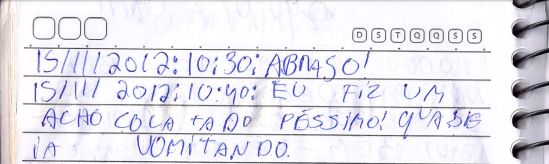 D S T Q Q S S
15/11/2012: 10:30: ABRASO!
15/11/2012: 10:40: EU FIZ UM
ACHO COLATADO PÉSSIMO! QUASE
IA VOMITANDO.